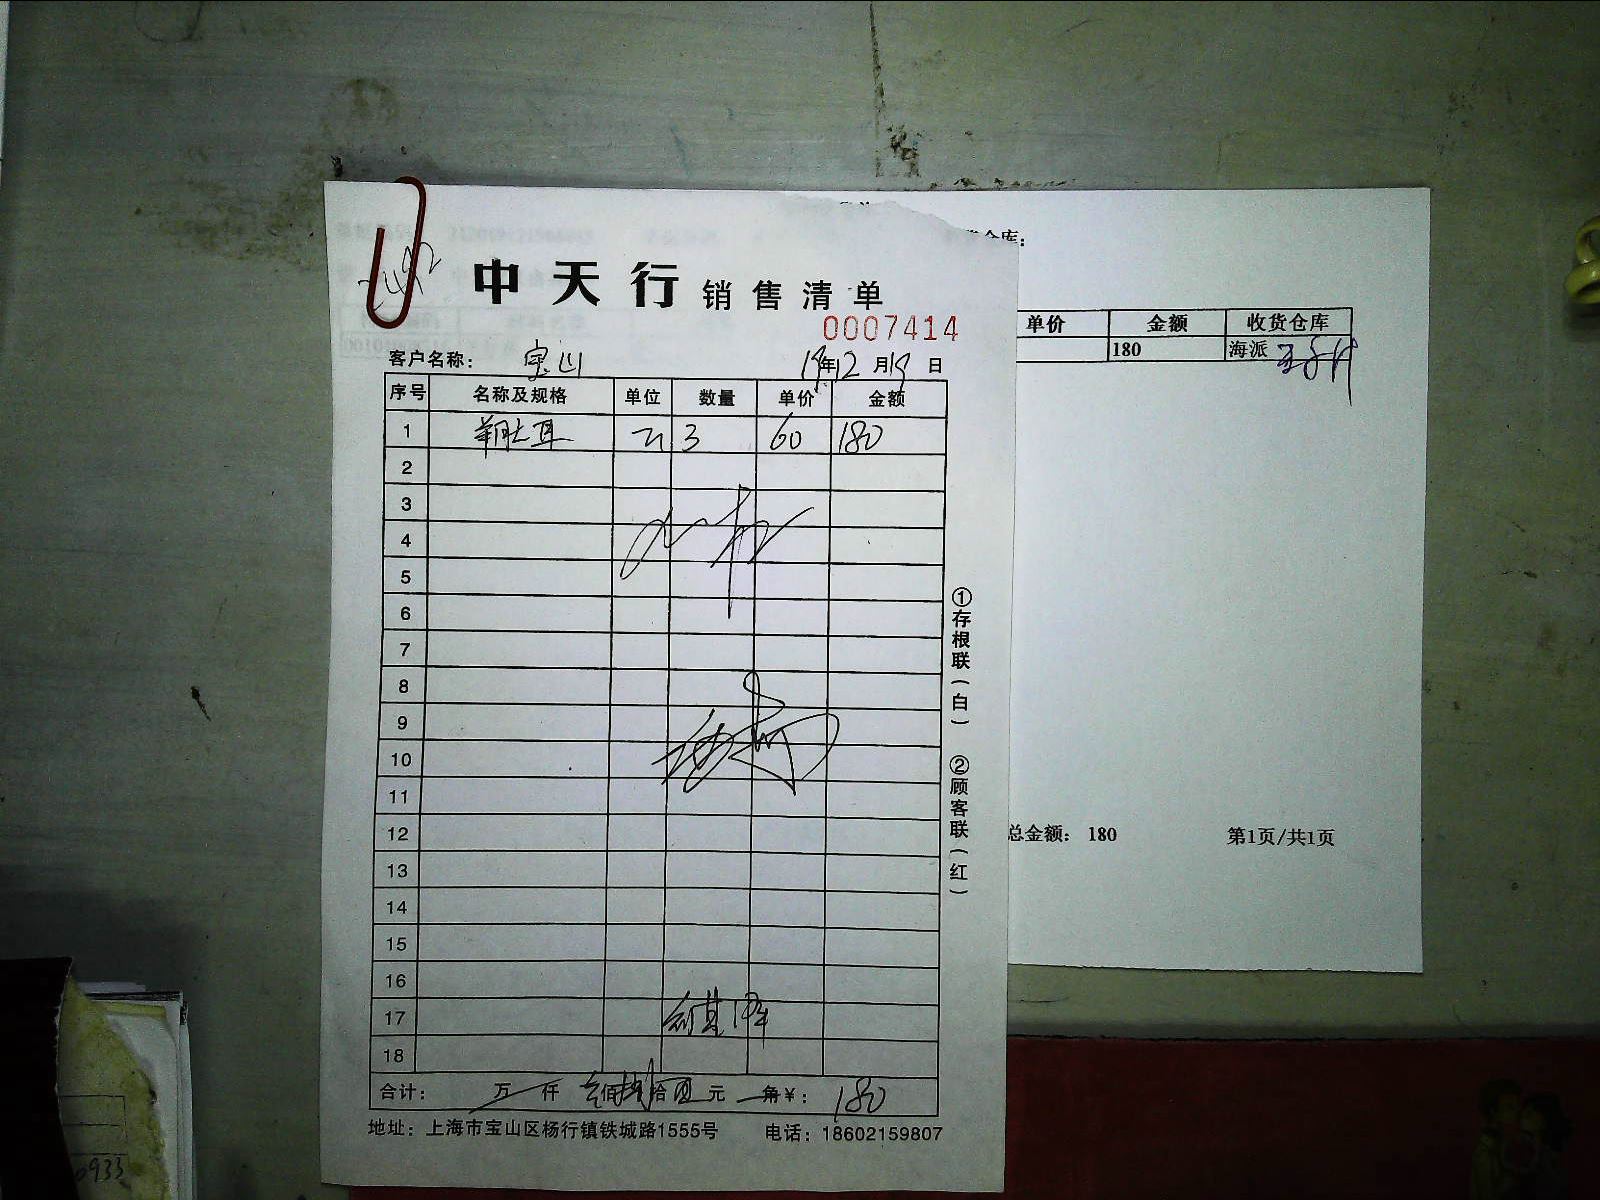 中天行 销售清单
0007414
客户名称: 宝山 19年12月19日
序号 名称及规格 单位 数量 单价 金额
1 3 60 180
2
3
4
5
6
7
8
9
10
11
12
13
14
15
16
17
18
合计: 万 仟 佰 拾 元 角¥: 180
地址: 上海市宝山区杨行镇铁城路1555号 电话: 18602159807
①存根联(白) ②顾客联(红)
仓库:
单价 金额 收货仓库
180 海派
总金额: 180 第1页/共1页
0933